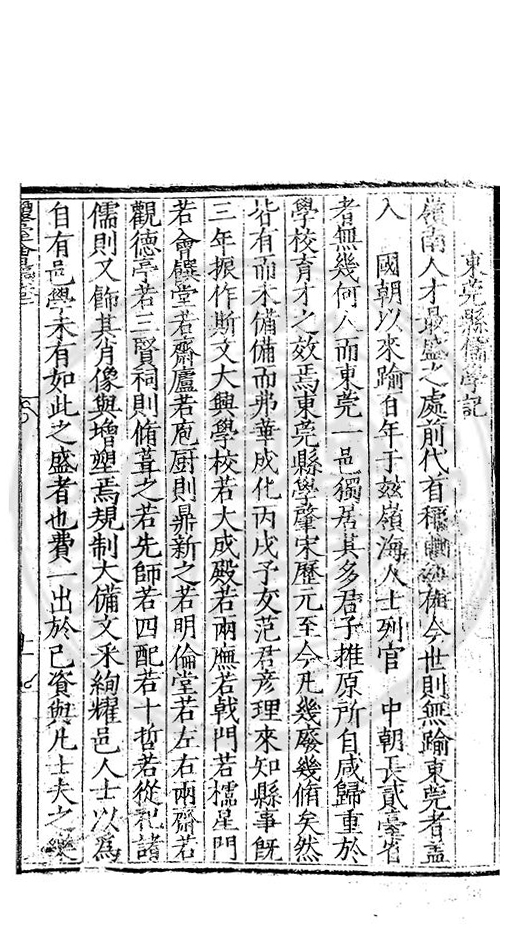 東莞縣儒學記
嶺南人才最盛之處前代首稱曲江在今世則無踰東莞者蓋
入 國朝以來踰百年于茲嶺海人士列官 中朝長貳臺省
者無幾何人而東莞一邑獨居其多君子推原所自咸歸重於
學校育才之效焉東莞縣學肇宋歷元至今凡幾廢幾脩矣然
皆有而未備備而弗華成化丙戌予友范君彥理來知縣事旣
三年振作斯文大興學校若大成殿若兩廡若戟門若櫺星門
若會饌堂若齋廬若庖厨則鼎新之若明倫堂若左右兩齋若
觀德亭若三賢祠則脩葺之若先師若四配若十哲若從祀諸
儒則又飾其肖像與增塑焉規制大備文采絢耀邑人士以為
自有邑學未有如此之盛者也費一出於己資與凡士夫之